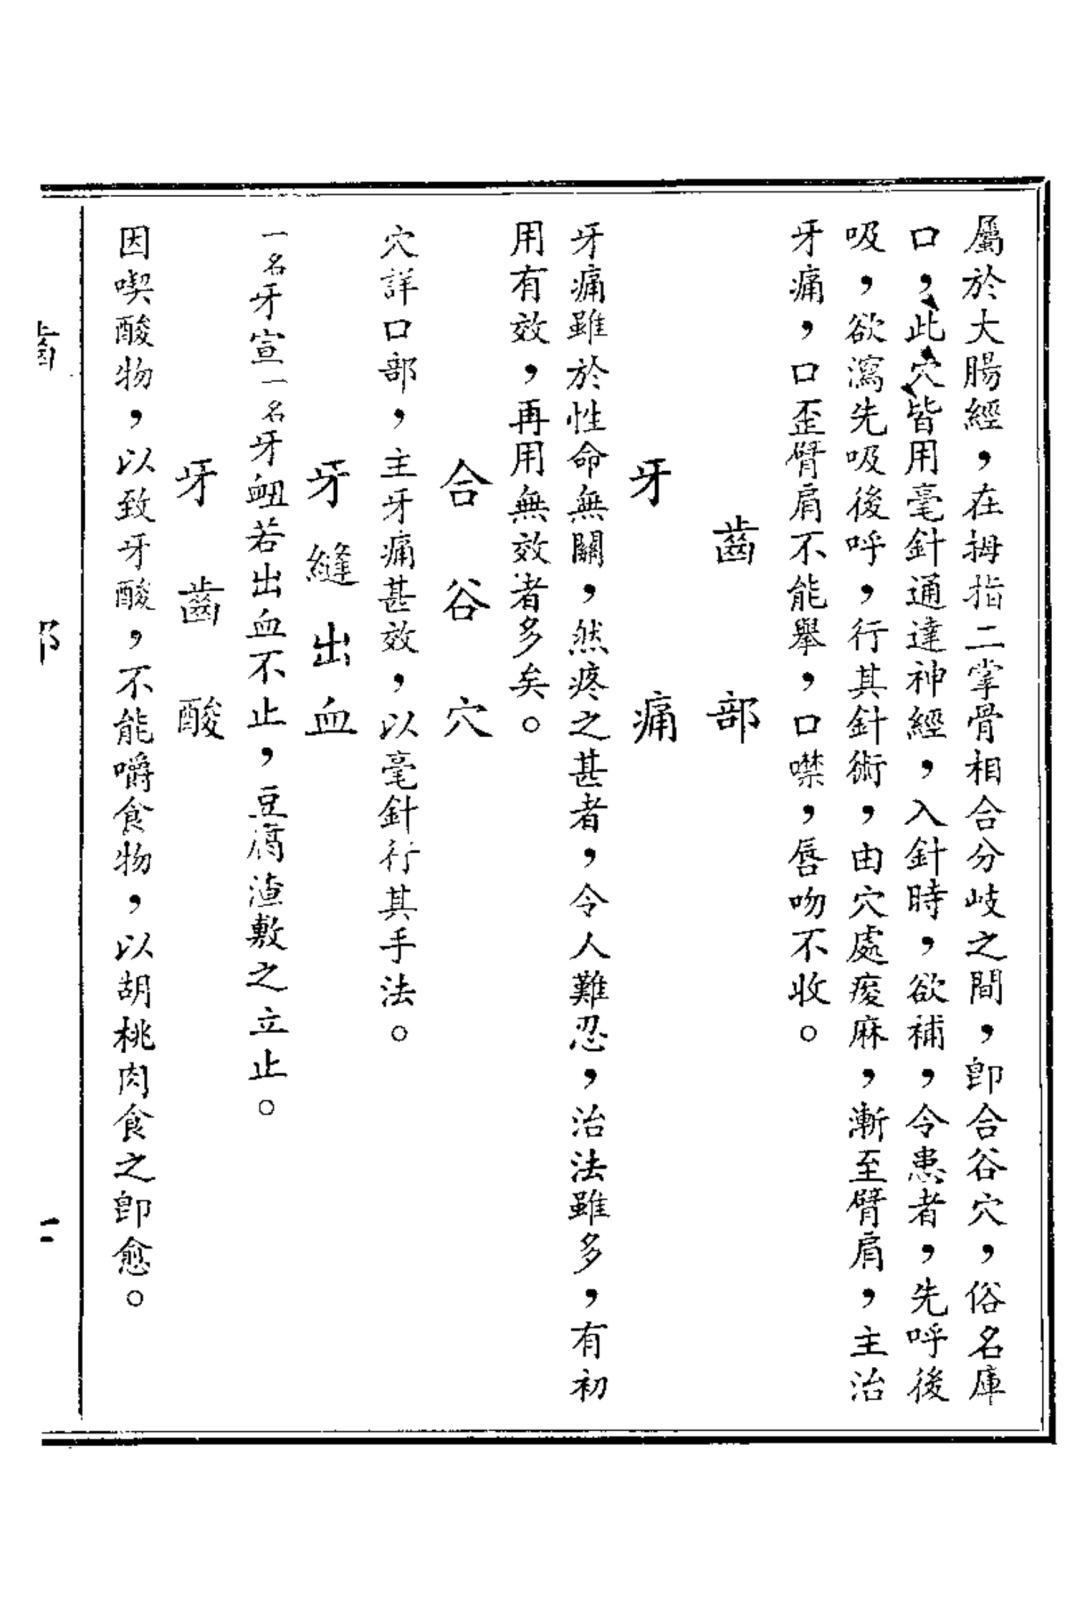 屬於大腸經，在拇指二掌骨相合分岐之間，卽合谷穴，俗名庫
口，此穴皆用毫針通達神經，入針時，欲補，令患者，先呼後
吸，欲瀉先吸後呼，行其針術，由穴處痠麻，漸至臂肩，主治
牙痛，口歪臂肩不能舉，口噤，唇吻不收。
齒部
牙痛
牙痛雖於性命無關，然疼之甚者，令人難忍，治法雖多，有初
用有效，再用無效者多矣。
合谷穴
穴詳口部，主牙痛甚效，以毫針行其手法。
牙縫出血
一名牙宣一名牙衄若出血不止，豆腐渣敷之立止。
牙齒酸
因喫酸物，以致牙酸，不能嚼食物，以胡桃肉食之卽愈。
齒部